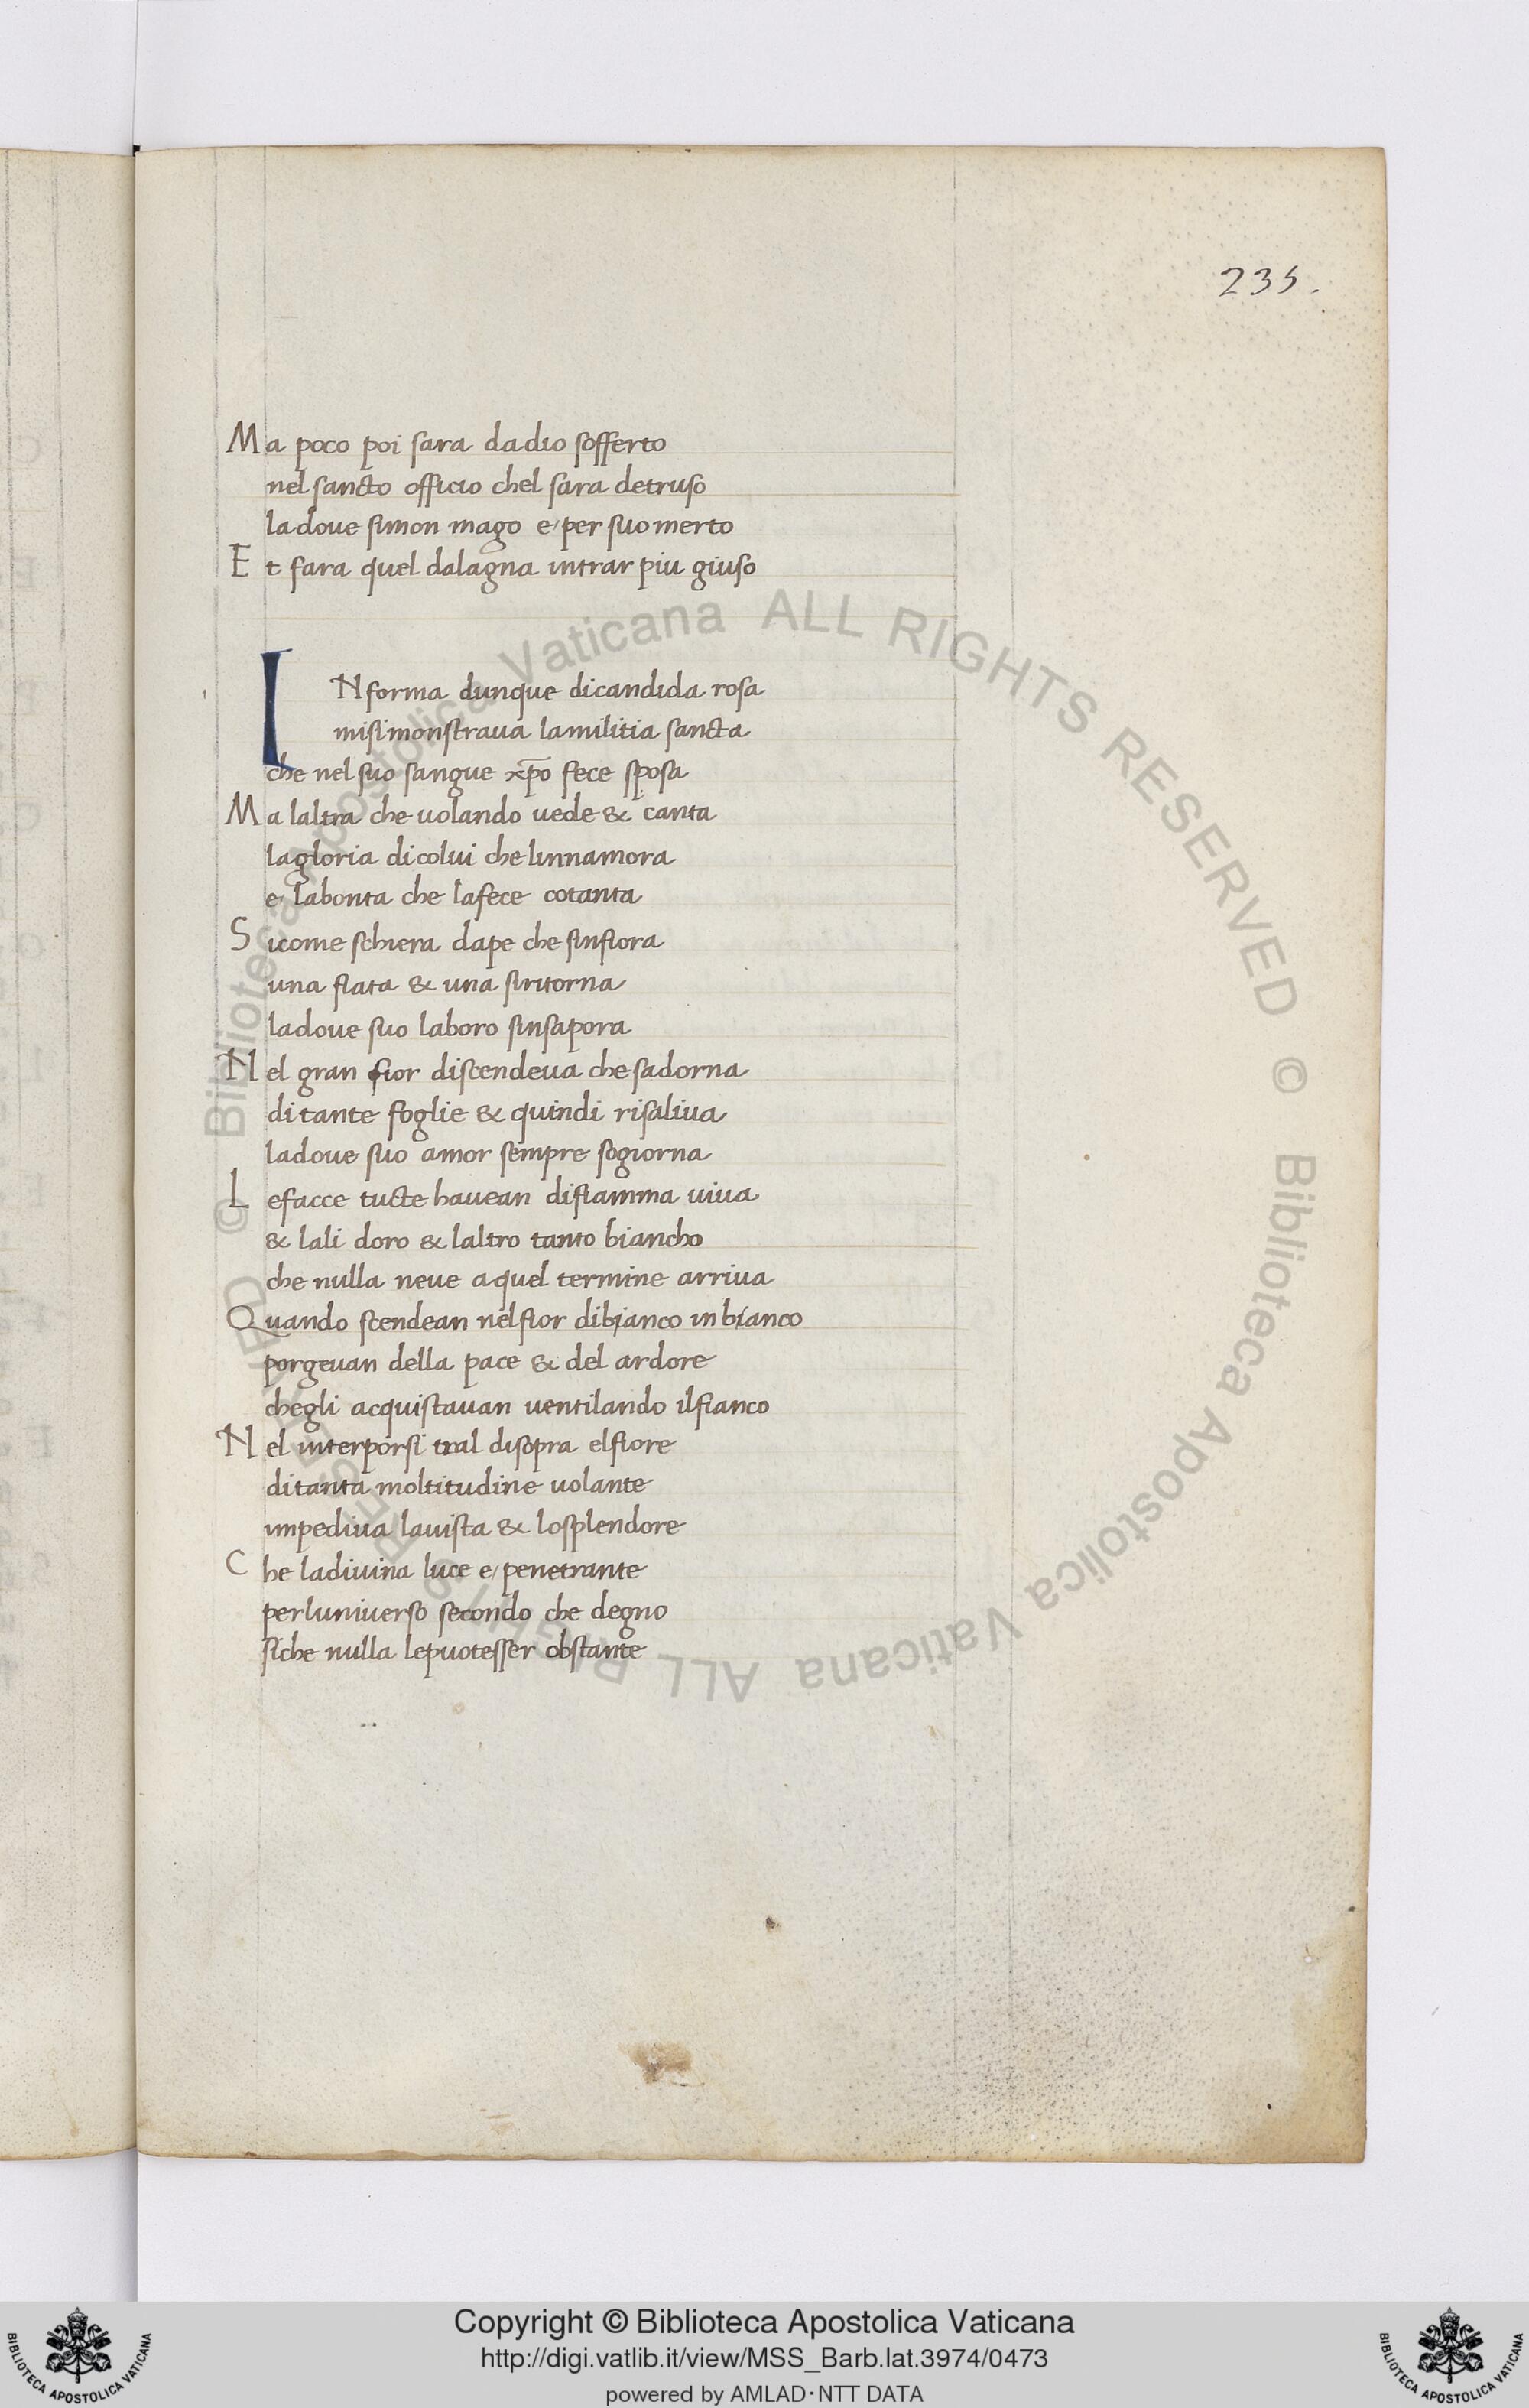 235.
Ma poco poi sara dadio sofferto
nel sancto officio chel sara detruso
ladoue simon mago e per suo merto
Et fara quel dalagna intrar piu giuso
INforma dunque dicandida rosa
misimonstraua lamilitia sancta
che nel suo sangue xp̄o fece sposa
Ma laltra che uolando uede & canta
lagloria dicolui che linnamora
e labonta che lafece cotanta
Sicome schiera dape che sinfiora
una fiata & una siritorna
ladoue suo laboro sinsapora
Nel gran fior discendeua che sadorna
ditante foglie & quindi risaliua
ladoue suo amor sempre sogiorna
Lefacce tucte hauean difiamma uiua
& lali doro & laltro tanto biancho
che nulla neue aquel termine arriua
Quando scendean nelfior dibianco inbianco
porgeuan della pace & del ardore
chegli acquistauan uentilando ilfianco
Nel interporsi tral disopra elfiore
ditanta moltitudine uolante
impediua lauista & losplendore
Che ladiuina luce e penetrante
perluniuerso secondo che degno
siche nulla lepuotesser obstante
© Biblioteca Apostolica Vaticana ALL RIGHTS RESERVED © Biblioteca Apostolica Vaticana ALL RIGHTS RESERVED
Copyright © Biblioteca Apostolica Vaticana
http://digi.vatlib.it/view/MSS_Barb.lat.3974/0473
powered by AMLAD·NTT DATA
BIBLIOTECA APOSTOLICA VATICANA
BIBLIOTECA APOSTOLICA VATICANA